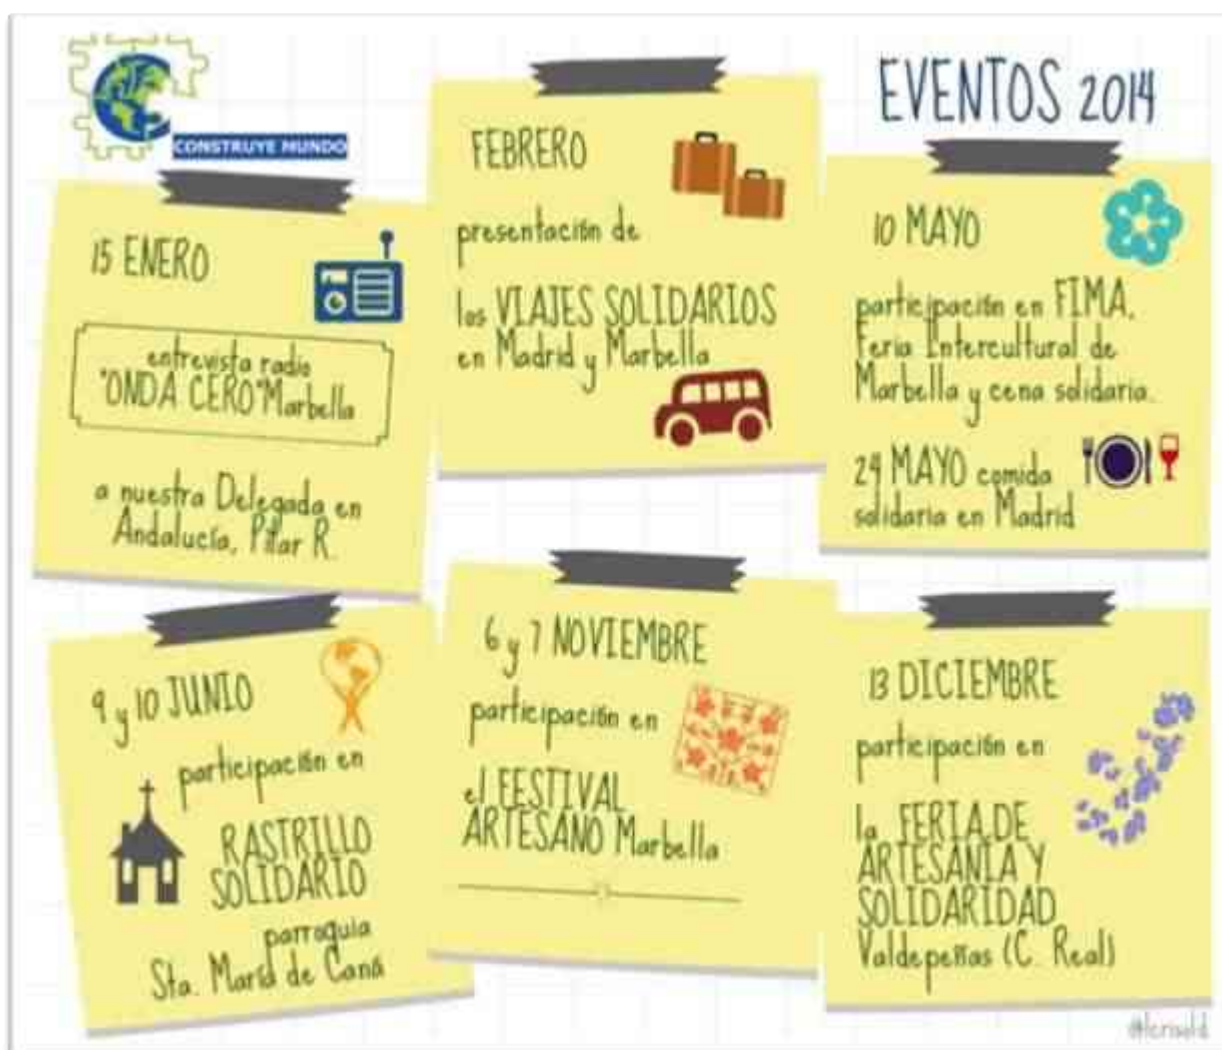 CONSTRUYE MUNDO
EVENTOS 2014
15 ENERO
entrevista radio
"ONDA CERO" Marbella
a nuestra Delegada en
Andalucía, Pilar R.
FEBRERO
presentación de
los VIAJES SOLIDARIOS
en Madrid y Marbella
10 MAYO
participación en FIMA,
Feria Intercultural de
Marbella y cena solidaria.
24 MAYO comida
solidaria en Madrid
9 y 10 JUNIO
participación en
RASTRILLO
SOLIDARIO
parroquia
Sta. María de Caná
6 y 7 NOVIEMBRE
participación en
el FESTIVAL
ARTESANO Marbella
13 DICIEMBRE
participación en
la FERIA DE
ARTESANÍA Y
SOLIDARIDAD
Valdepeñas (C. Real)